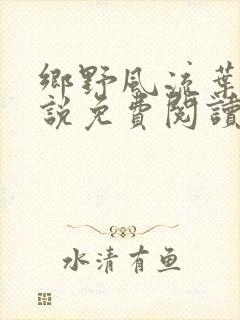 鄉野風流葉
說免費閱讀
水清有鱼